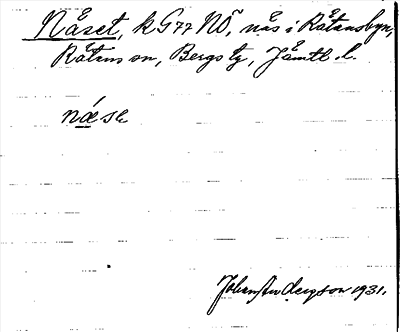 Nåset, k G77 NÖ, nås i Råtansbyn,
Råtans sn, Bergs tg, Jämtl. l.
næsɩ
Johan Anderson 1931.